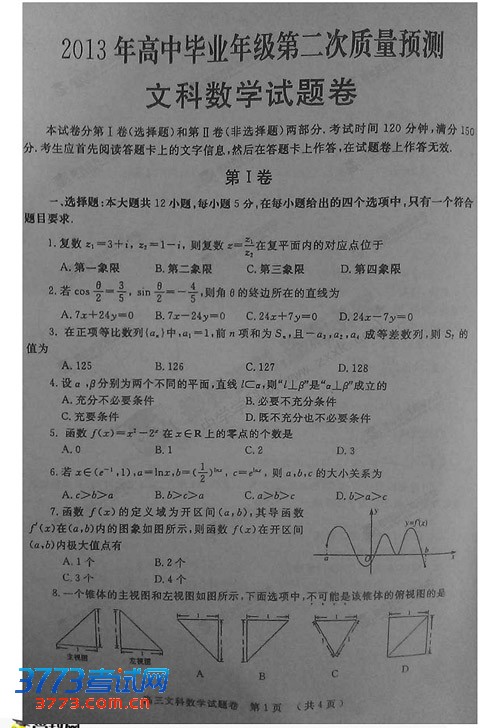 2013年高中毕业年级第二次质量预测
文科数学试题卷
本试卷分第Ⅰ卷(选择题)和第Ⅱ卷(非选择题)两部分.考试时间120分钟,满分150
分.考生应首先阅读答题卡上的文字信息,然后在答题卡上作答,在试题卷上作答无效.
第Ⅰ卷
一、选择题:本大题共12小题,每小题5分,在每小题给出的四个选项中,只有一个符合
题目要求.
1.复数z₁=3+i, z₂=1-i, 则复数z=z₁/z₂在复平面内的对应点位于
A.第一象限 B.第二象限 C.第三象限 D.第四象限
2.若cos θ/2=3/5, sin θ/2=-4/5,则角θ的终边所在的直线为
A.7x+24y=0 B.7x-24y=0 C.24x+7y=0 D.24x-7y=0
3.在正项等比数列{aₙ}中,a₁=1,前n项和为Sₙ,且-a₃,a₂,a₄成等差数列,则S₇的
值为
A.125 B.126 C.127 D.128
4.设α,β分别为两个不同的平面,直线l⊂α,则“l⊥β”是“α⊥β”成立的
A.充分不必要条件 B.必要不充分条件
C.充要条件 D.既不充分也不必要条件
5.函数f(x)=x²-2ˣ在x∈R上的零点的个数是
A.0 B.1 C.2 D.3
6.若x∈(e⁻¹,1),a=lnx,b=(1/2)^lnx, c=e^lnx, 则a,b,c的大小关系为
A.c>b>a B.b>c>a C.a>b>c D.b>a>c
7.函数f(x)的定义域为开区间(a,b),其导函数
f′(x)在(a,b)内的图象如图所示,则函数f(x)在开区间
(a,b)内极大值点有
A.1个 B.2个
C.3个 D.4个
y
y=f′(x)
a O b x
8.一个锥体的主视图和左视图如图所示,下面选项中,不可能是该锥体的俯视图的是
主视图 左视图
A B C D
3773考试网
www.3773.com.cn
高三文科数学试题卷 第1页 (共4页)